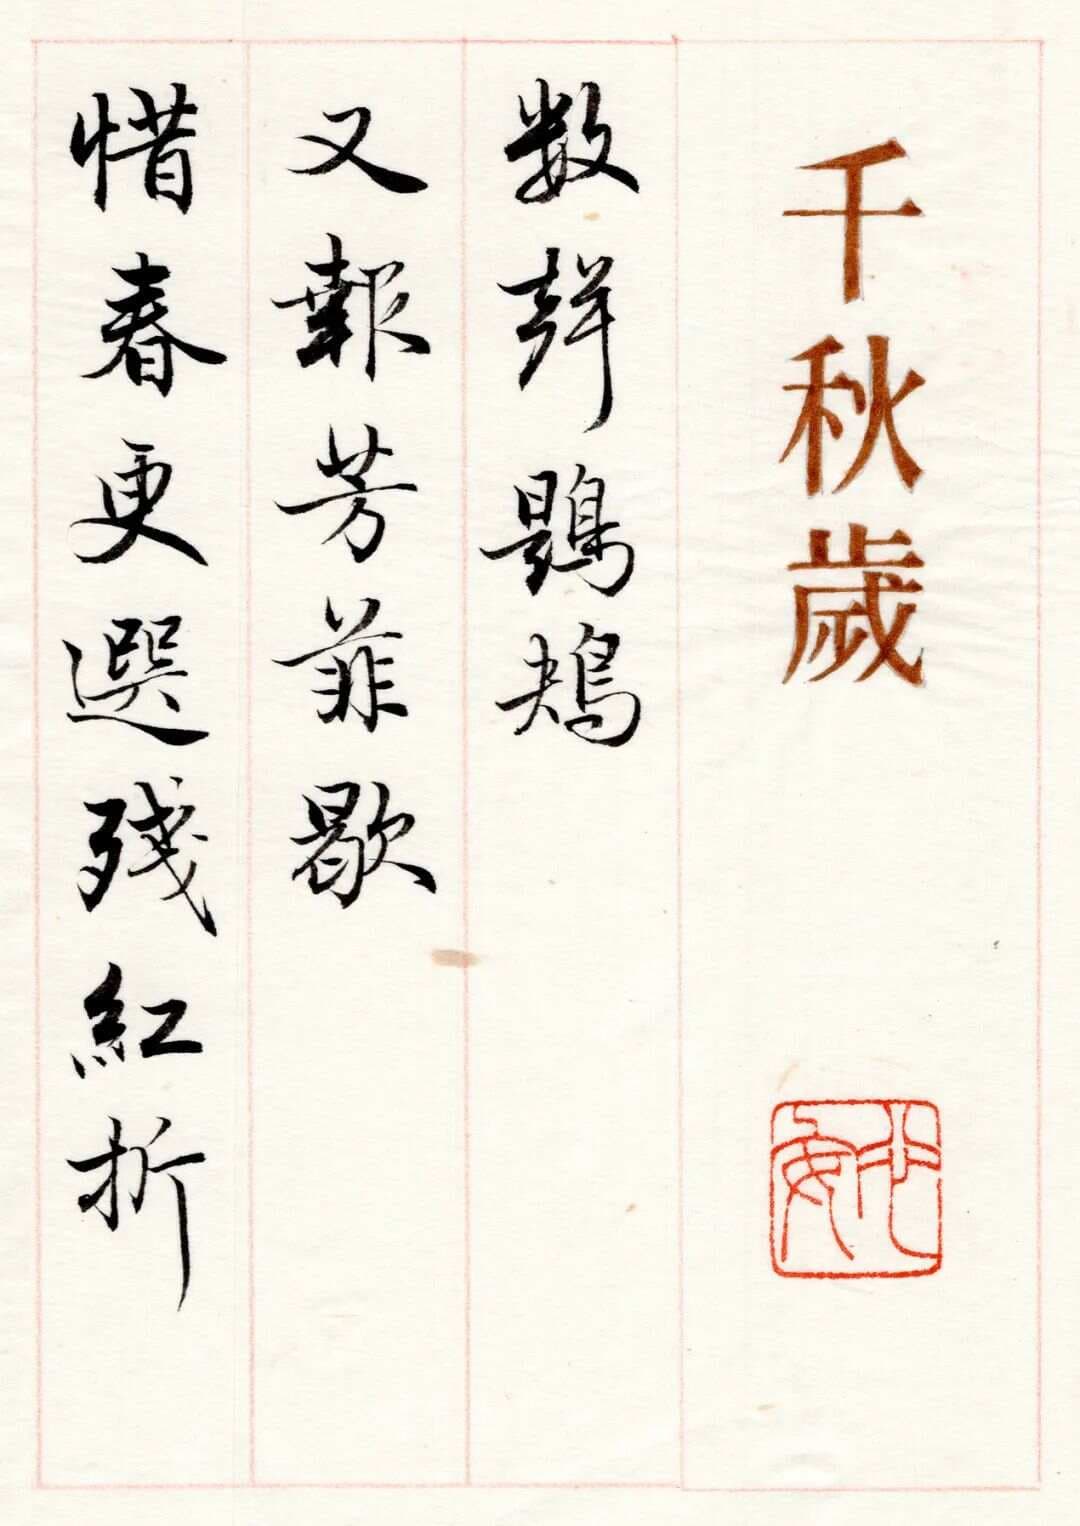 千秋歲
数聲鶗鴂
又報芳菲歇
惜春更選殘紅折